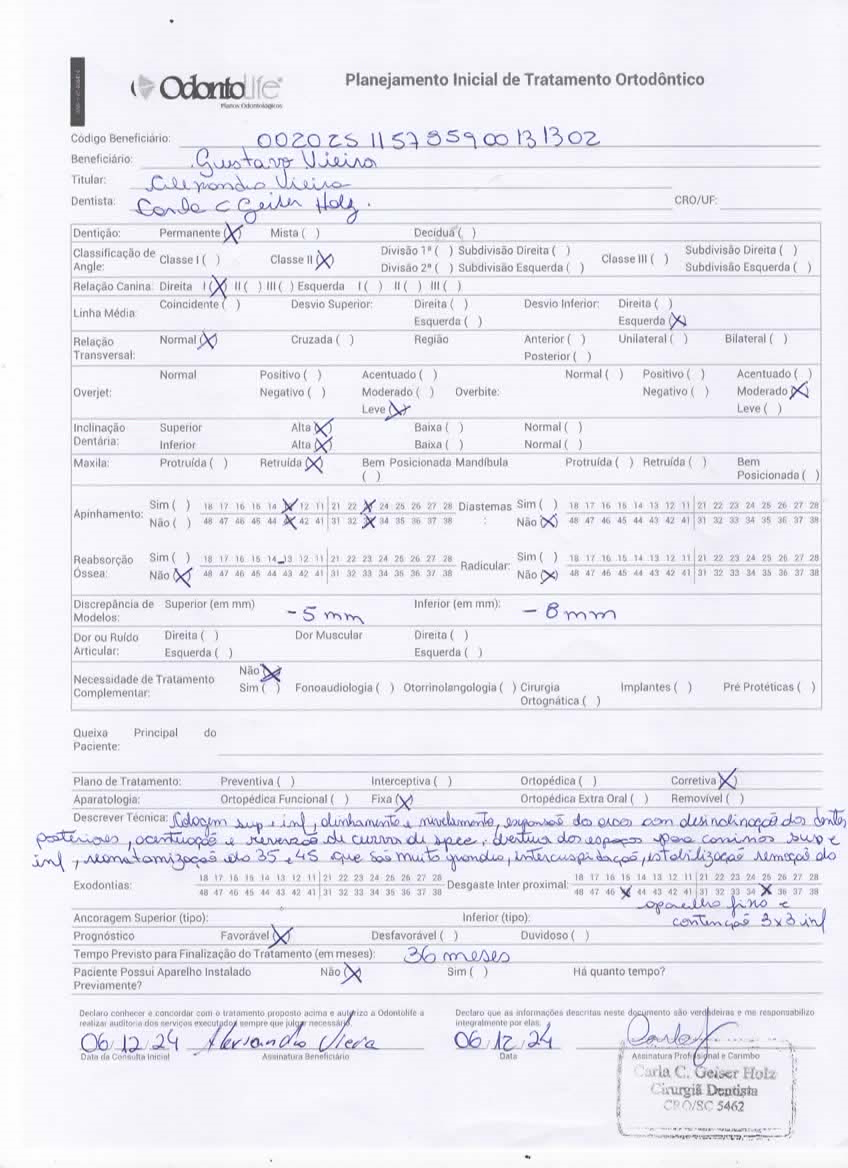 OdontoLife
Planos Odontológicos
Planejamento Inicial de Tratamento Ortodôntico
Código Beneficiário: 00202511578590013 1302
Beneficiário: Gustavo Vieira
Titular: Alexandro Vieira
Dentista: Carla C Geiser Holz. CRO/UF:
Dentição: Permanente (X) Mista ( ) Decídua ( )
Classificação de Angle: Classe I ( ) Classe II (X) Divisão 1ª ( ) Subdivisão Direita ( ) Classe III ( ) Subdivisão Direita ( )
Divisão 2ª ( ) Subdivisão Esquerda ( ) Subdivisão Esquerda ( )
Relação Canina: Direita I (X) II ( ) III ( ) Esquerda I ( ) II ( ) III ( )
Linha Média: Coincidente ( ) Desvio Superior: Direita ( ) Desvio Inferior: Direita ( )
Esquerda ( ) Esquerda (X)
Relação Transversal: Normal (X) Cruzada ( ) Região Anterior ( ) Unilateral ( ) Bilateral ( )
Posterior ( )
Overjet: Normal Positivo ( ) Acentuado ( ) Overbite: Normal ( ) Positivo ( ) Acentuado ( )
Negativo ( ) Moderado ( ) Negativo ( ) Moderado (X)
Leve (X) Leve ( )
Inclinação Dentária: Superior Alta (X) Baixa ( ) Normal ( )
Inferior Alta (X) Baixa ( ) Normal ( )
Maxila: Protruída ( ) Retruída (X) Bem Posicionada ( ) Mandíbula Protruída ( ) Retruída ( ) Bem Posicionada ( )
Apinhamento: Sim ( ) 18 17 16 15 14 X 12 11 21 22 X 24 25 26 27 28 Diastemas: Sim ( ) 18 17 16 15 14 13 12 11 21 22 23 24 25 26 27 28
Não ( ) 48 47 46 45 44 X 42 41 31 32 X 34 35 36 37 38 Não (X) 48 47 46 45 44 43 42 41 31 32 33 34 35 36 37 38
Reabsorção Óssea: Sim ( ) 18 17 16 15 14 13 12 11 21 22 23 24 25 26 27 28 Radicular: Sim ( ) 18 17 16 15 14 13 12 11 21 22 23 24 25 26 27 28
Não (X) 48 47 46 45 44 43 42 41 31 32 33 34 35 36 37 38 Não (X) 48 47 46 45 44 43 42 41 31 32 33 34 35 36 37 38
Discrepância de Modelos: Superior (em mm) -5 mm Inferior (em mm): -8 mm
Dor ou Ruído Articular: Direita ( ) Dor Muscular Direita ( )
Esquerda ( ) Esquerda ( )
Necessidade de Tratamento Complementar: Não (X)
Sim ( ) Fonoaudiologia ( ) Otorrinolangologia ( ) Cirurgia Ortognática ( ) Implantes ( ) Pré Protéticas ( )
Queixa Principal do Paciente:
Plano de Tratamento: Preventiva ( ) Interceptiva ( ) Ortopédica ( ) Corretiva (X)
Aparatologia: Ortopédica Funcional ( ) Fixa (X) Ortopédica Extra Oral ( ) Removível ( )
Descrever Técnica: Colagem sup e inf, alinhamento e nivelamento, expansão do arco com desinclinação dos dentes
posteriores, acentuação e reversão de curva de spee, abertura dos espaços para caninos sup e
inf, reanatomização do 35 e 45 que são muito grandes, intercuspidação, estabilização remoção do
aparelho fixo e
contenção 3x3 inf
Exodontias: 18 17 16 15 14 13 12 11 21 22 23 24 25 26 27 28 Desgaste Inter proximal: 18 17 16 15 14 13 12 11 21 22 23 24 25 26 27 28
48 47 46 45 44 43 42 41 31 32 33 34 35 36 37 38 48 47 46 X 44 43 42 41 31 32 33 34 X 36 37 38
Ancoragem Superior (tipo): Inferior (tipo):
Prognóstico Favorável (X) Desfavorável ( ) Duvidoso ( )
Tempo Previsto para Finalização do Tratamento (em meses): 36 meses
Paciente Possui Aparelho Instalado Previamente? Não (X) Sim ( ) Há quanto tempo?
Declaro conhecer e concordar com o tratamento proposto acima e autorizo a Odontolife a
realizar auditoria dos serviços executados sempre que julgar necessário.
Declaro que as informações descritas neste documento são verdadeiras e me responsabilizo
integralmente por elas.
06/12/24 Alexandro Vieira 06/12/24
Data da Consulta Inicial Assinatura Beneficiário Data Assinatura Profissional e Carimbo
Carla C. Geiser Holz
Cirurgiã Dentista
CRO/SC 5462